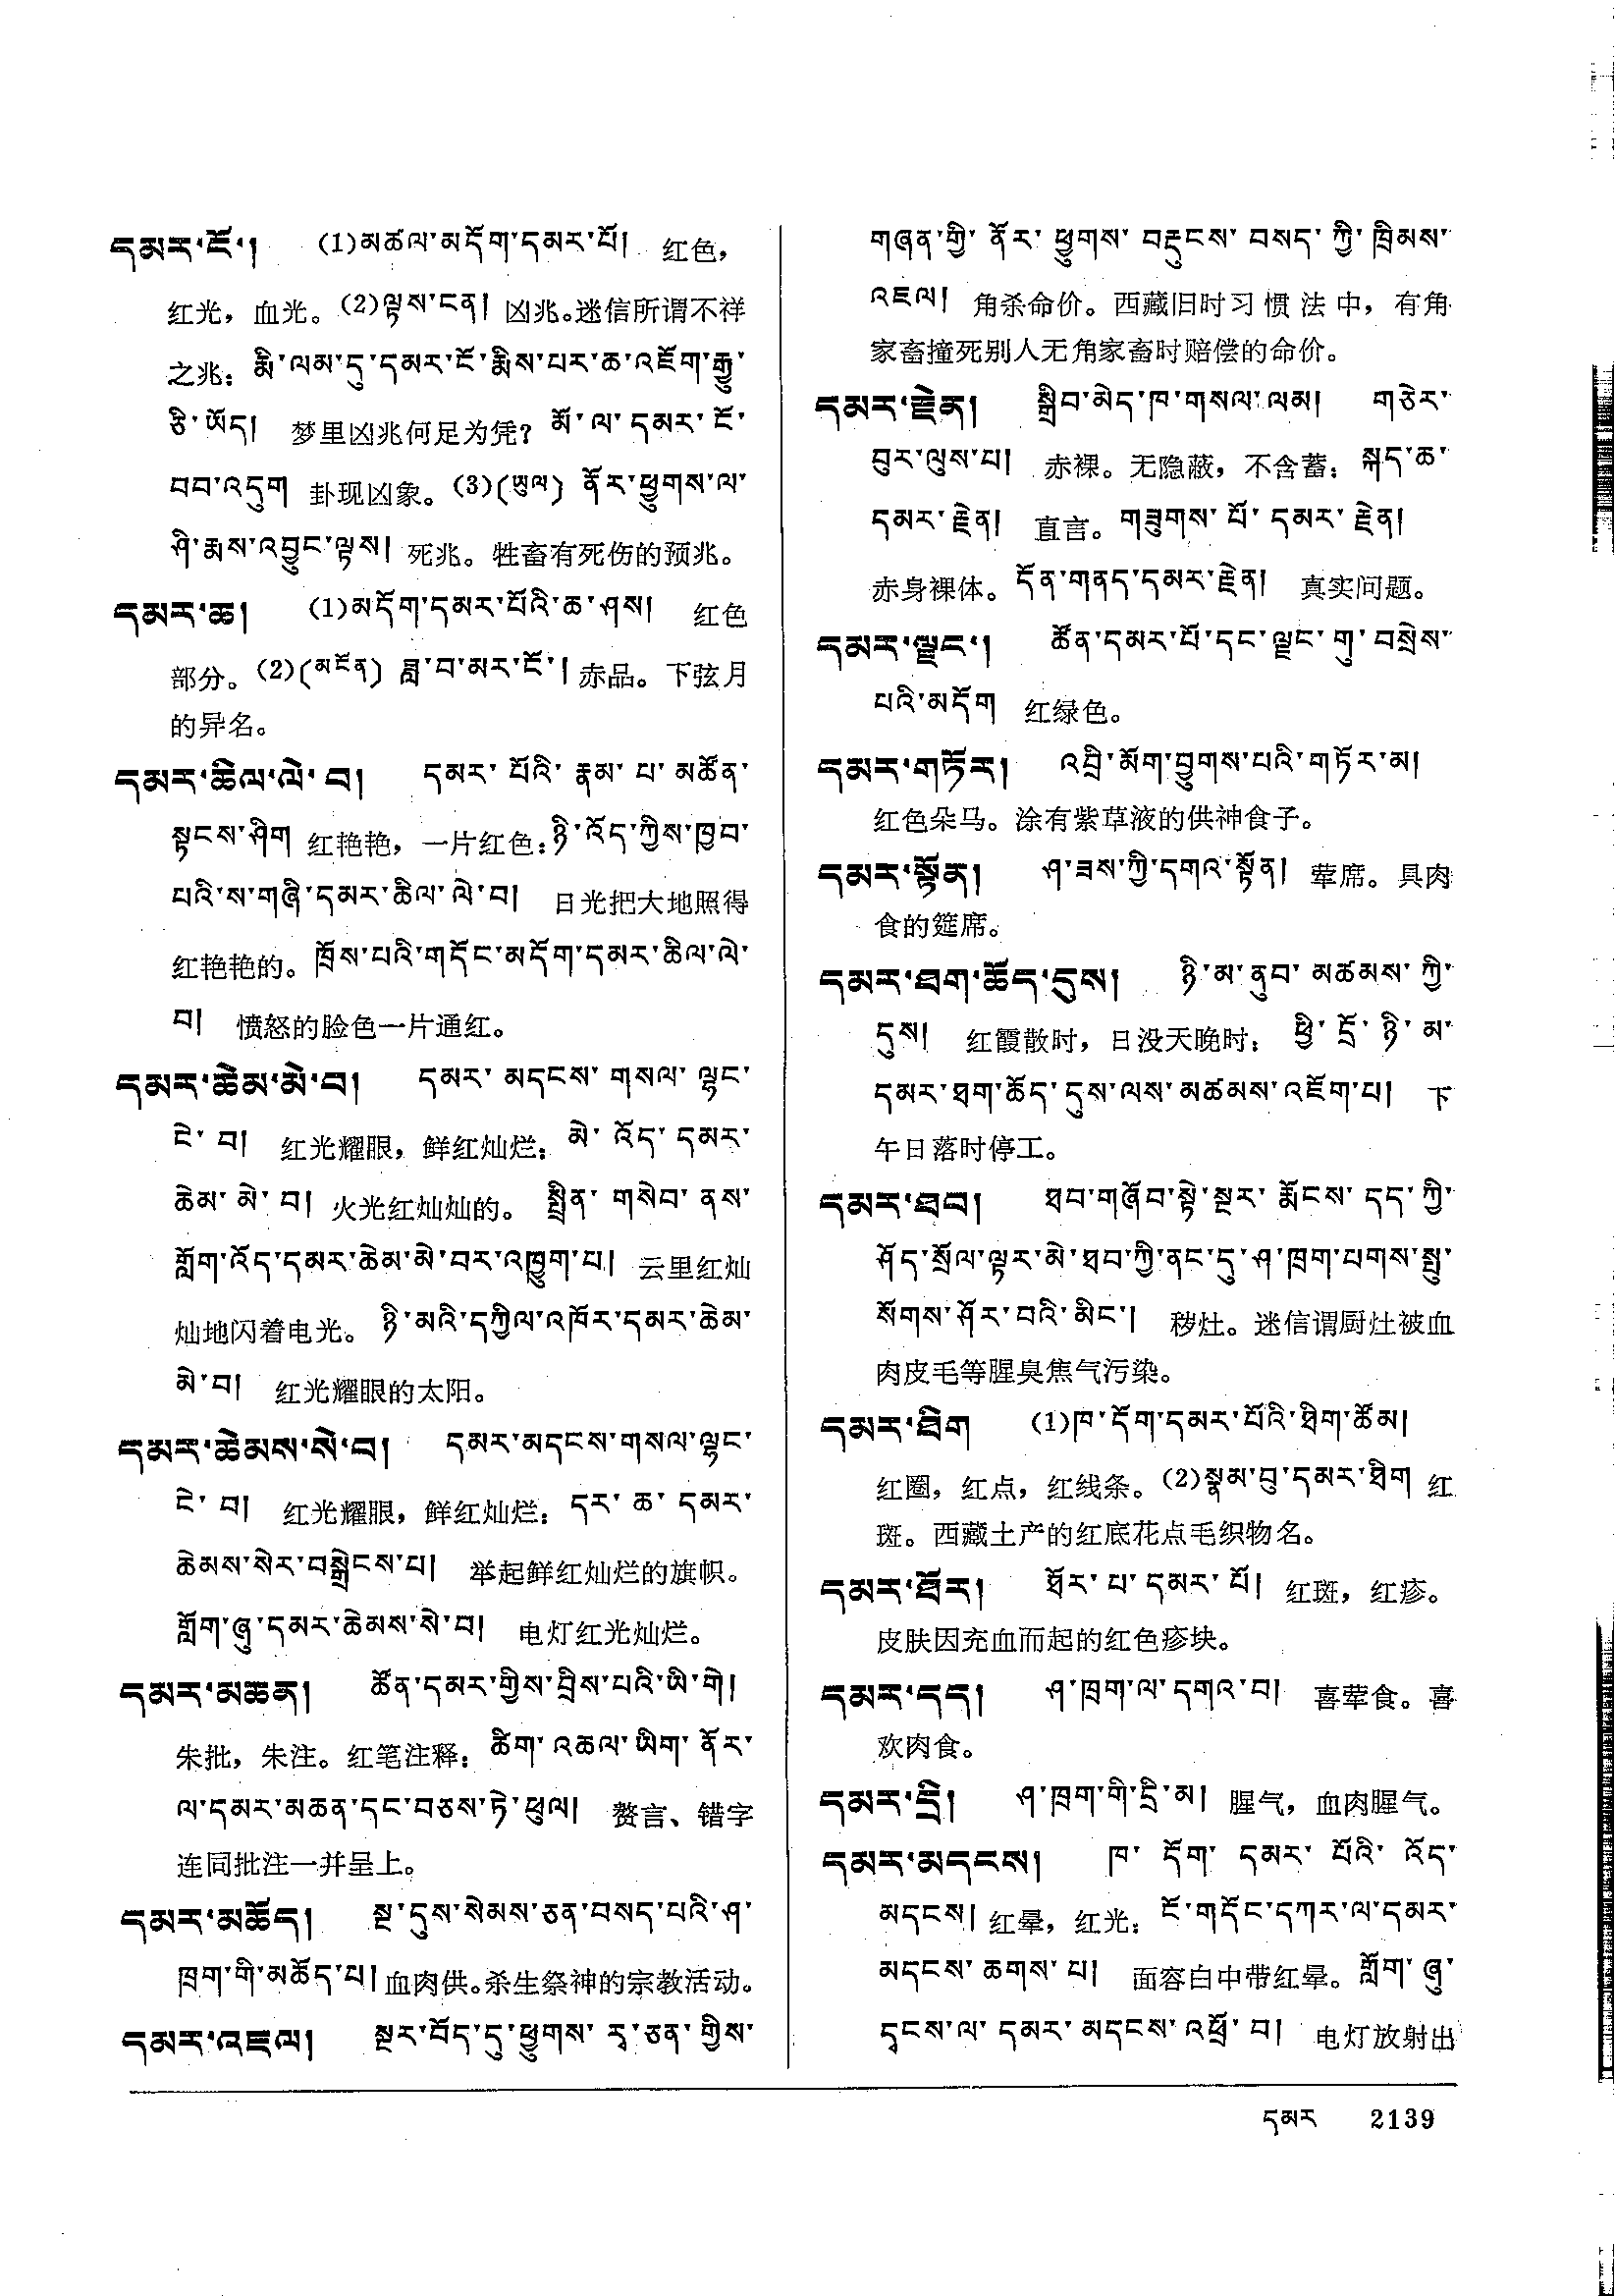 དམར་ངོ་། (1)མཚལ་མདོག་དམར་པོ། 红色，
红光，血光。(2)ལྟས་ངན། 凶兆。迷信所谓不祥
之兆：རྨི་ལམ་དུ་དམར་ངོ་རྨིས་པར་ཆ་འཇོག་རྒྱུ་
ཅི་ཡོད། 梦里凶兆何足为凭？མོ་ལ་དམར་ངོ་
བབ་འདུག 卦现凶象。(3)(ཡུལ) ནོར་ཕྱུགས་ལ་
ཤི་རྨས་འབྱུང་ལྟས། 死兆。牲畜有死伤的预兆。
དམར་ཆ། (1)མདོག་དམར་པོའི་ཆ་ཤས། 红色
部分。(2)(མངོན) ཟླ་བ་མར་ངོ་། 赤品。下弦月
的异名。
དམར་ཆིལ་ལེ་བ། དམར་པོའི་རྣམ་པ་མཚོན་
སྟངས་ཤིག 红艳艳，一片红色：ཉི་འོད་ཀྱིས་ཁྱབ་
པའི་ས་གཞི་དམར་ཆིལ་ལེ་བ། 日光把大地照得
红艳艳的。ཁྲོས་པའི་གདོང་མདོག་དམར་ཆིལ་ལེ་
བ། 愤怒的脸色一片通红。
དམར་ཆེམ་མེ་བ། དམར་མདངས་གསལ་ལྷང་
ངེ་བ། 红光耀眼，鲜红灿烂：མེ་འོད་དམར་
ཆེམ་མེ་བ། 火光红灿灿的。སྤྲིན་གསེབ་ནས་
གློག་འོད་དམར་ཆེམ་མེ་བར་འཁྱུག་པ། 云里红灿
灿地闪着电光。ཉི་མའི་དཀྱིལ་འཁོར་དམར་ཆེམ་
མེ་བ། 红光耀眼的太阳。
དམར་ཆེམས་སེ་བ། དམར་མདངས་གསལ་ལྷང་
ངེ་བ། 红光耀眼，鲜红灿烂：དར་ཆ་དམར་
ཆེམས་སེར་བསྒྲེངས་པ། 举起鲜红灿烂的旗帜。
གློག་ཞུ་དམར་ཆེམས་སེ་བ། 电灯红光灿烂。
དམར་མཆན། ཚོན་དམར་གྱིས་བྲིས་པའི་ཡི་གེ།
朱批，朱注。红笔注释：ཚིག་འཆལ་ཡིག་ནོར་
ལ་དམར་མཆན་དང་བཅས་ཏེ་ཕུལ། 赘言、错字
连同批注一并呈上。
དམར་མཆོད། སྔ་དུས་སེམས་ཅན་བསད་པའི་ཤ་
ཁྲག་གི་མཆོད་པ། 血肉供。杀生祭神的宗教活动。
དམར་འཇལ། སྔར་བོད་དུ་ཕྱུགས་རྭ་ཅན་གྱིས་
གཞན་གྱི་ནོར་ཕྱུགས་བརྡུངས་བསད་ཀྱི་ཁྲིམས་
འཇལ། 角杀命价。西藏旧时习惯法中，有角
家畜撞死别人无角家畜时赔偿的命价。
དམར་རྗེན། སྒྲིབ་མེད་ཁ་གསལ་ལམ། གཅེར་
བུར་ལུས་པ། 赤裸。无隐蔽，不含蓄：སྐད་ཆ་
དམར་རྗེན། 直言。གཟུགས་པོ་དམར་རྗེན།
赤身裸体。དོན་གནད་དམར་རྗེན། 真实问题。
དམར་ལྗང་། ཚོན་དམར་པོ་དང་ལྗང་གུ་བསྲེས་
པའི་མདོག 红绿色。
དམར་གཏོར། འབྲི་མོག་བྱུགས་པའི་གཏོར་མ།
红色朵马。涂有紫草液的供神食子。
དམར་སྟོན། ཤ་ཟས་ཀྱི་དགའ་སྟོན། 荤席。具肉
食的筵席。
དམར་ཐག་ཆོད་དུས། ཉི་མ་ནུབ་མཚམས་ཀྱི་
དུས། 红霞散时，日没天晚时：ཕྱི་དྲོ་ཉི་མ་
དམར་ཐག་ཆོད་དུས་ལས་མཚམས་འཇོག་པ། 下
午日落时停工。
དམར་ཐབ། ཐབ་གཞོབ་སྟེ་སྔར་རྨོངས་དད་ཀྱི་
ཤོད་སྲོལ་ལྟར་མེ་ཐབ་ཀྱི་ནང་དུ་ཤ་ཁྲག་པགས་སྤུ་
སོགས་ཤོར་བའི་མིང་། 秽灶。迷信谓厨灶被血
肉皮毛等腥臭焦气污染。
དམར་ཐིག (1)ཁ་དོག་དམར་པོའི་ཐིག་ཚོམ།
红圈，红点，红线条。(2)སྣམ་བུ་དམར་ཐིག 红
斑。西藏土产的红底花点毛织物名。
དམར་ཐོར། ཐོར་པ་དམར་པོ། 红斑，红疹。
皮肤因充血而起的红色疹块。
དམར་དད། ཤ་ཁྲག་ལ་དགའ་བ། 喜荤食。喜
欢肉食。
དམར་དྲི། ཤ་ཁྲག་གི་དྲི་མ། 腥气，血肉腥气。
དམར་མདངས། ཁ་དོག་དམར་པོའི་འོད་
མདངས། 红晕，红光：ངོ་གདོང་དཀར་ལ་དམར་
མདངས་ཆགས་པ། 面容白中带红晕。གློག་ཞུ་
དྭངས་ལ་དམར་མདངས་འཕྲོ་བ། 电灯放射出
དམར 2139